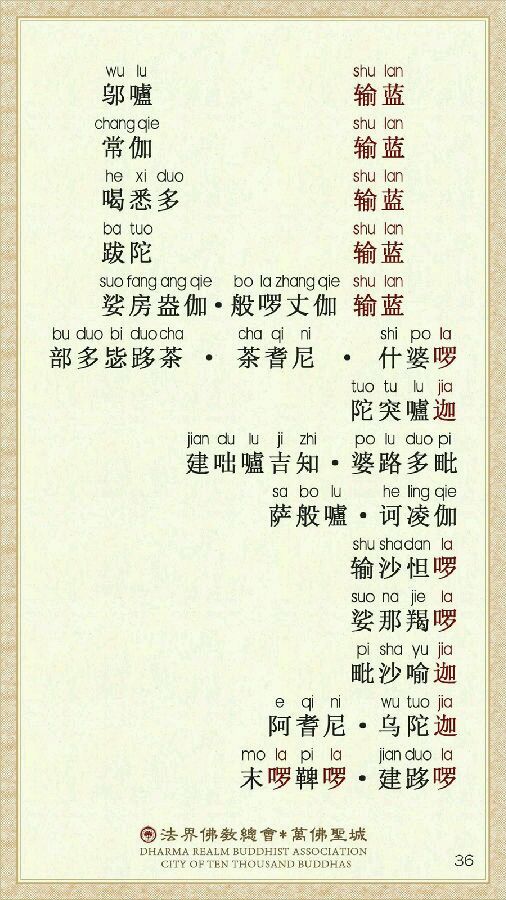 wu lu shu lan
邬嚧 输蓝
chang qie shu lan
常伽 输蓝
he xi duo shu lan
喝悉多 输蓝
ba tuo shu lan
跋陀 输蓝
suo fang ang qie bo la zhang qie shu lan
娑房盎伽·般啰丈伽 输蓝
bu duo bi duo cha cha qi ni shi po la
部多毖跢茶·茶耆尼·什婆啰
tuo tu lu jia
陀突嚧迦
jian du lu ji zhi po lu duo pi
建咄嚧吉知·婆路多毗
sa bo lu he ling qie
萨般嚧·诃凌伽
shu sha dan la
输沙怛啰
suo na jie la
娑那羯啰
pi sha yu jia
毗沙喻迦
e qi ni wu tuo jia
阿耆尼·乌陀迦
mo la pi la jian duo la
末啰鞞啰·建跢啰
法界佛教總會*萬佛聖城
DHARMA REALM BUDDHIST ASSOCIATION
CITY OF TEN THOUSAND BUDDHAS
36